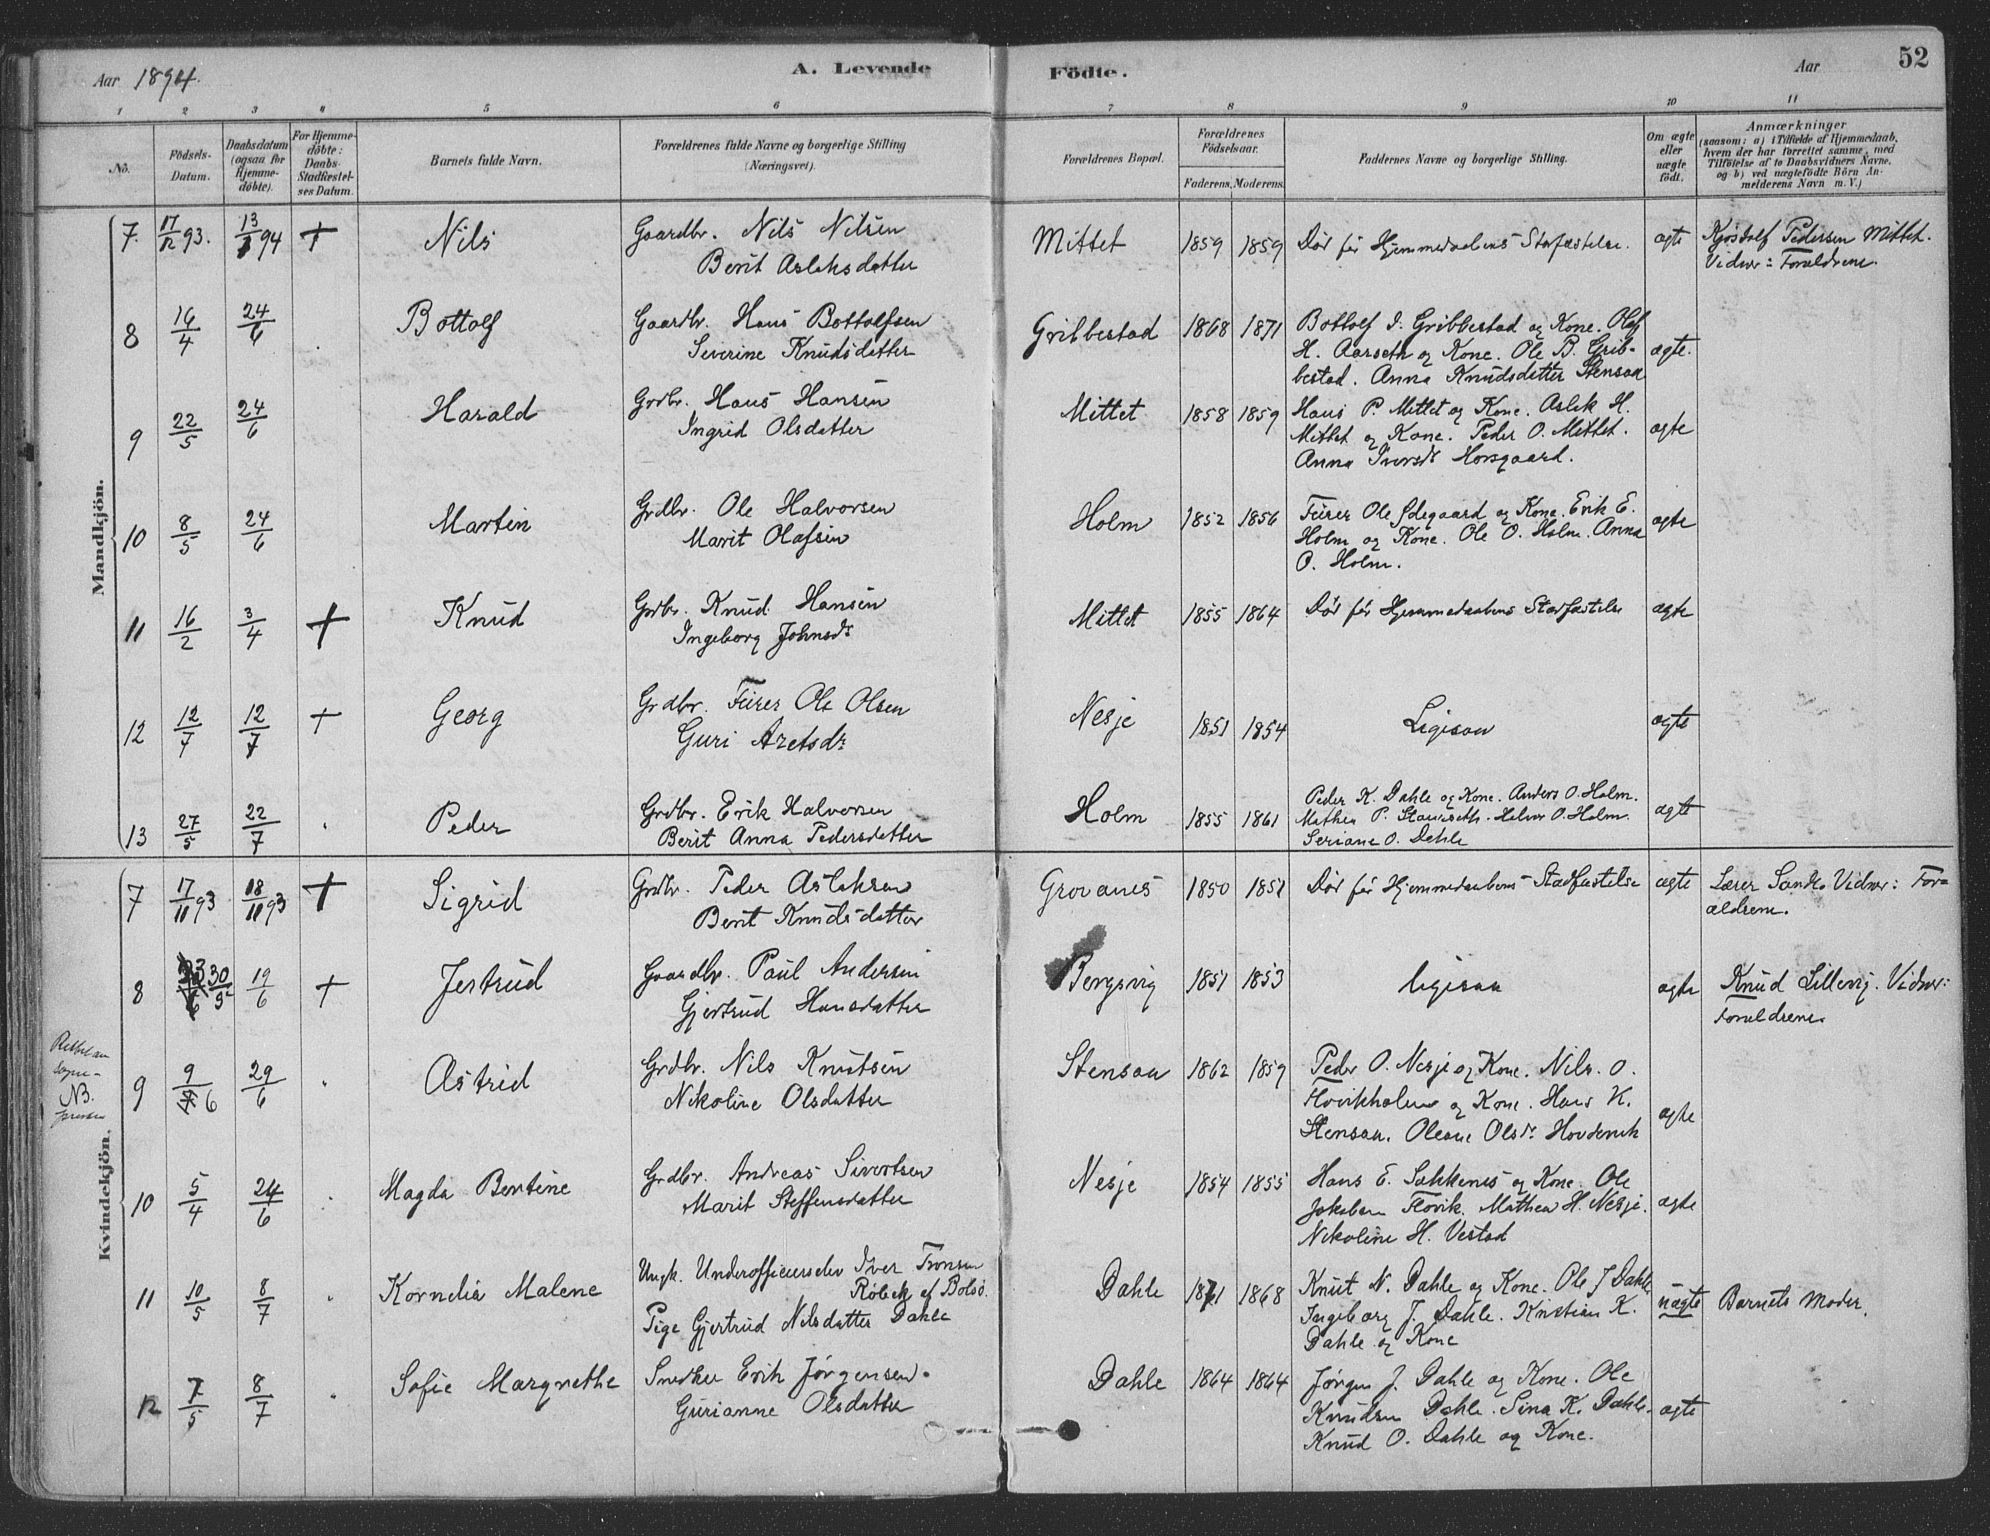 Aar 1894.
A. Levende Födte.
Aar
52
1 2 3 4 5 6 7 8 9 10 11
No.
Födsels-Datum.
Daabsdatum (ogsaa for Hjemme-döbte).
For Hjemme-döbte: Daabs-Stadfæstel-ses Datum.
Barnets fulde Navn.
Forældrenes fulde Navne og borgerlige Stilling (Næringsvei).
Forældrenes Bopæl.
Forældrenes Födselsaar.
Faderens. Moderens.
Faddernes Navne og borgerlige Stilling.
Om ægte eller uægte födt.
Anmærkninger
(saasom: a) i Tilfælde af Hjemmedaab, hvem der har forrettet samme, med Tilföielse af to Daabsvidners Navne, og b) ved uægtefödte Börn An-melderens Navn m. V.)
Mandkjön.
7. 17/12 93. 13/3 94 + Nils Gaardbr. Nils Nilsen Mittet 1859 1859 Dör før Hjemmedaabens Stadfæstelse. ægte Pedersen Mittet.
Berit Aslaksdatter Vidner: Forældrene.
8 16/4 24/6 . Bottolf Gaardbr. Hans Bottolfsen Gribbestad 1868 1871 Bottolf I. Gribbestad og Kone. Olaf
Severine Knudsdatter H. Aarseth og Kone. Ole B. Grib- ægte.
bestad. Anna Knudsdatter Stensaa
9 22/5 24/6 Harald Grdbr. Hans Hansen Mittet 1858 1859 Hans P. Mittet og Kone. Aslak H.
Ingrid Olsdatter Mittet og Kone. Peder O. Mittet. ægte
Anna Iversdr Horsgaard.
10 8/5 24/6 Martin Grdbr. Ole Halvorsen Holm 1852 1856 Furer Ole Ødegaard og Kone. Erik E. ægte
Marit Olafsen Holm og Kone. Ole O. Holm. Anna
O. Holm.
11 16/2 3/4 + Knud Grdbr. Knud Hansen Mittet 1855 1864 Dör før Hjemmedaabens Stadfæstelse ægte
Ingeborg Johnsdr
12 12/7 12/7 + Georg Grdbr. Furer Ole Olsen Nesje 1851 1854 Ligesaa ægte
Guri Aretsdr
13 27/5 22/7 . Peder Grdbr. Erik Halvorsen Holm 1855 1861 Peder K. Dahle og Kone. Anders O. Holm. ægte
Berit Anna Pedersdatter Mathea P. Halvor O. Holm.
Seriane O. Dahle
Kvindekjön.
7 17/11 93 18/11 93 + Sigrid Grdbr. Peder Aslaksen Grovanes 1850 1851 Dör før Hjemmedaabens Stadfæstelse ægte Lærer Vidner: For-
Berit Knudsdatter ældrene.
8 30/5 19/6 + Jertrud Gaardbr. Paul Andersen Bergsvig 1851 1853 ligesaa ægte Knud Lillevig. Vidner:
Gjertrud Hansdatter Forældrene.
NB.
9 9/6 29/6 . Astrid Grdbr. Nils Knutsen Stensaa 1862 1859 Peder O. Nesje og Kone. Nils O.
Nikoline Olsdatter Hovikholm og Kone. Hans K. ægte
Stensaa. Oleane Olsdr Hovdenak
10 5/4 24/6 . Magda Bertine Grdbr. Andreas Sivertsen Nesje 1854 1855 Hans E. Sækkenes og Kone. Ole
Marit Steffensdatter Jakobsen Hovik. Mathea H. Nesje. ægte
Nikoline H. Vestad
11 10/5 8/7 . Kornelia Malene Ungk. Underofficerselev Iver Tronsen Dahle 1871 1868 Knut N. Dahle og Kone. Ole J Dahle uægte Barnets Moder.
Røbek af Bolsø. Ingeborg J. Dahle. Kristian K.
Pige Gjertrud Nilsdatter Dahle Dahle og Kone
12 7/5 8/7 . Sofie Margrethe Snedker Erik Jørgensen. Dahle 1864 1864 Jørgen J. Dahle og Kone. Ole
Gurianne Olsdatter Knudsen Dahle. Sina K. Dahle. ægte
Knud O. Dahle og Kone.